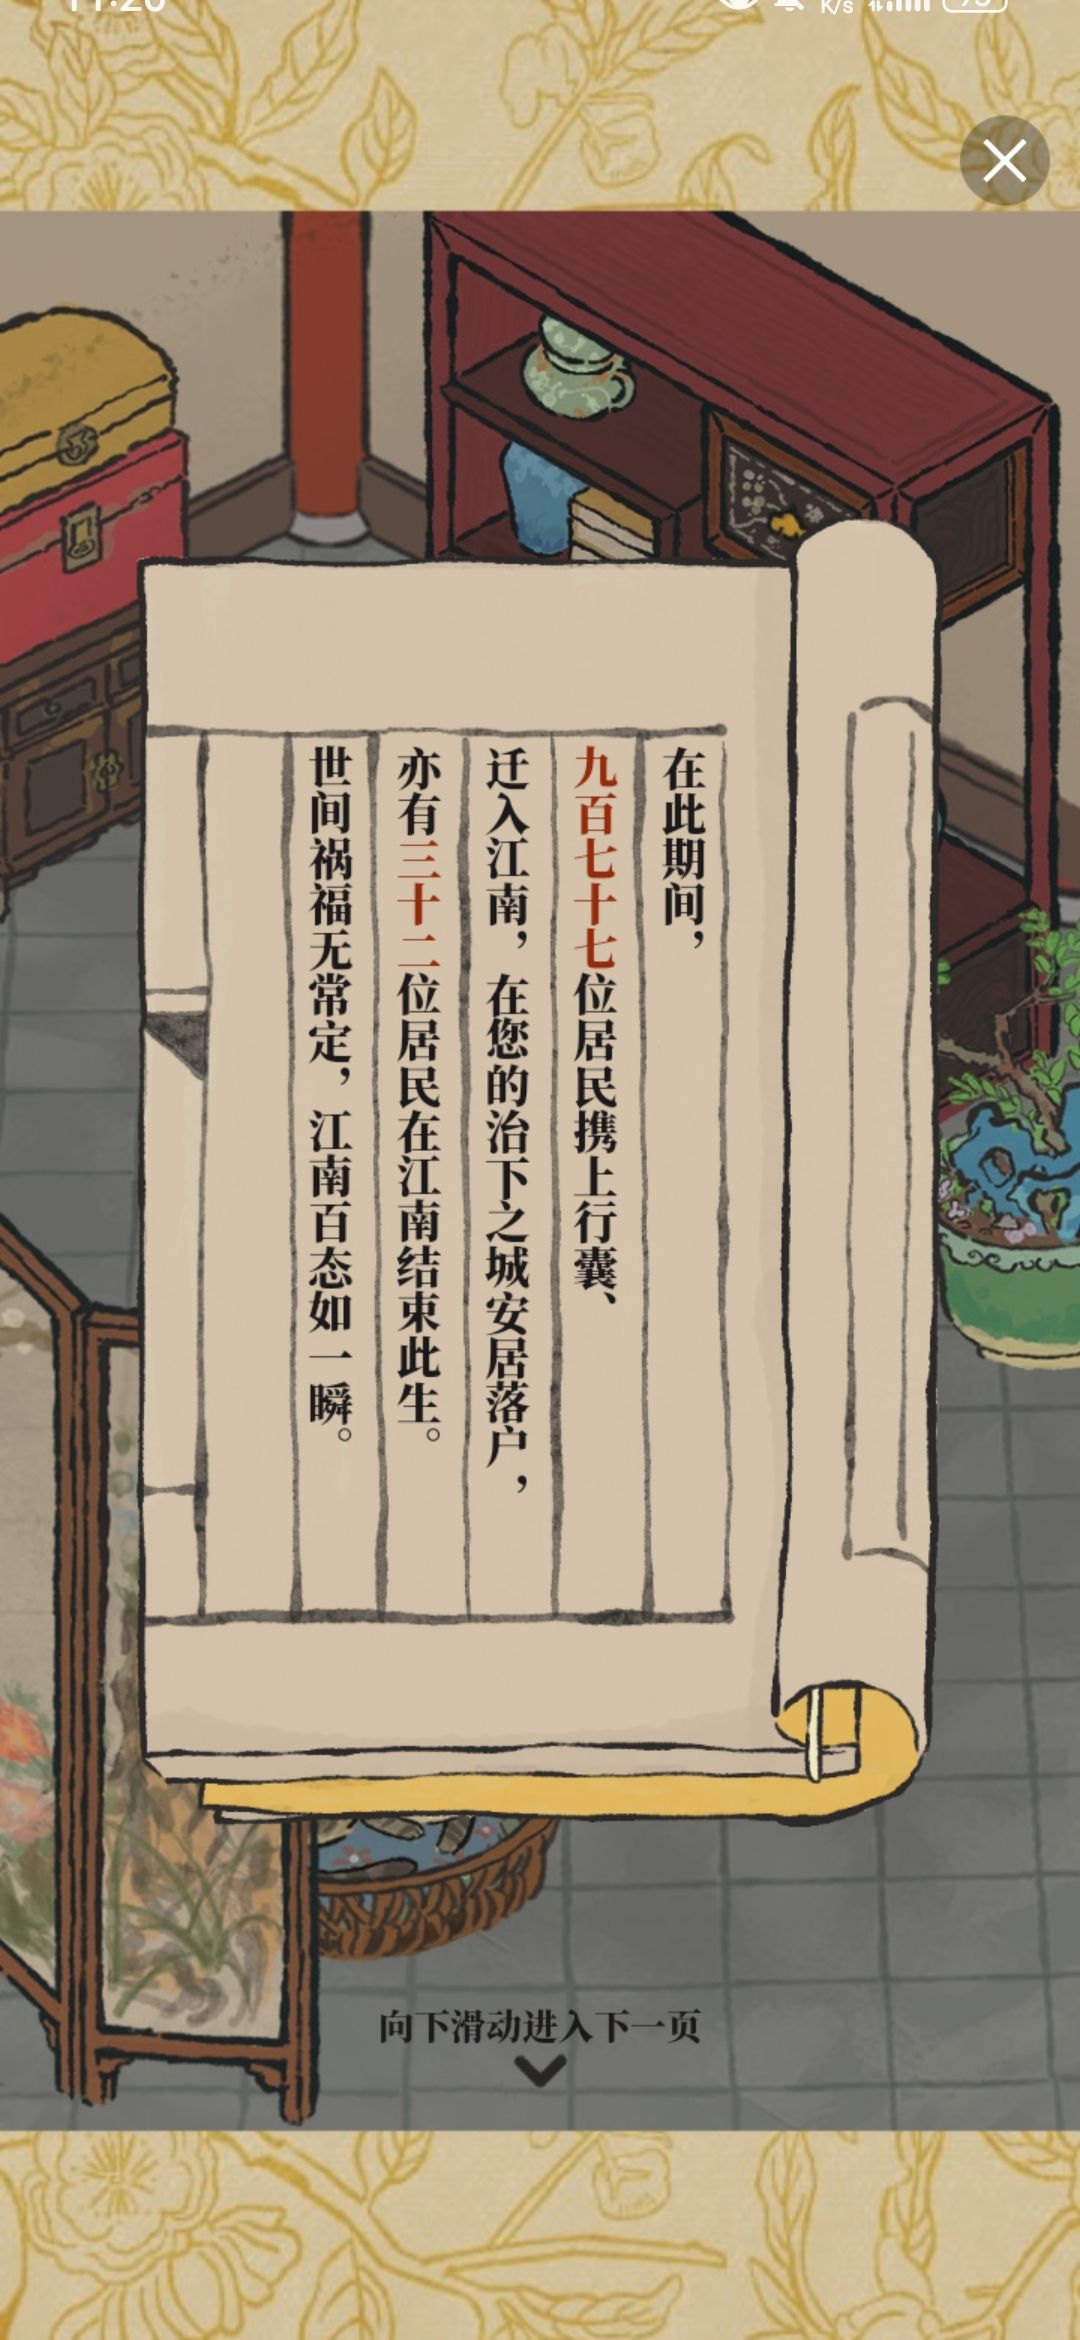 在此期间，
九百七十七位居民携上行囊、
迁入江南，在您的治下之城安居落户，
亦有三十二位居民在江南结束此生。
世间祸福无常定，江南百态如一瞬。
向下滑动进入下一页